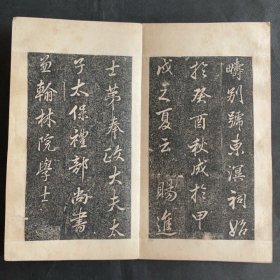 疇别號東溟祠始
於癸酉秋成於甲
戌之夏云 賜進
士第奉政大夫太
子太保禮部尚書
兼翰林院學士